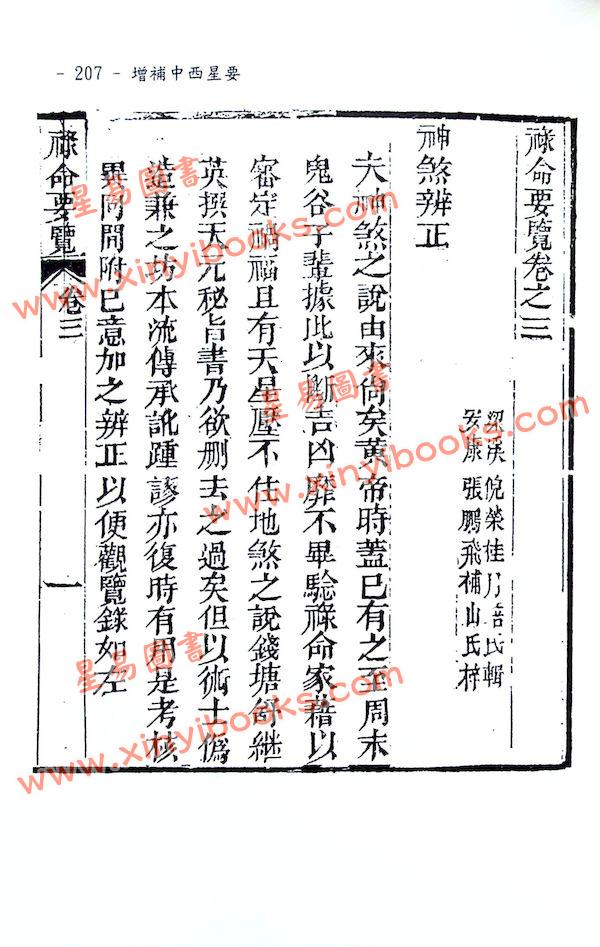 - 207 - 增補中西星要
祿命要覽卷之三
梁溪倪榮桂月培氏輯
安康張鵬飛補山氏梓
神煞辨正
夫神煞之說由來尙矣黃帝時蓋已有之至周末
鬼谷子輩據此以斷吉凶靡不畢驗祿命家藉以
審定禍福且有天星壓不住地煞之說錢塘舒繼
英撰天元秘旨書乃欲刪去之過矣但以術士僞
造兼之坊本流傳承訛踵謬亦復時有用是考核
異同間附己意加之辨正以便觀覽錄如左
祿命要覽 卷三 一
星易圖書
www.xinyibooks.com
星易圖書
www.xinyibooks.com
星易圖書
www.xinyibooks.com